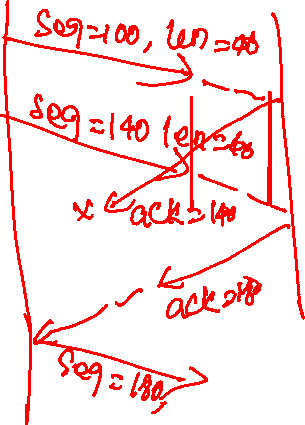 Seq=100, len=40
Seq=140 len=40
x ack=140
ack=180
Seq=180,